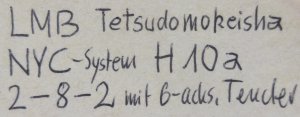 LMB Tetsudomokeisha
NYC-System H10a
2-8-2 mit 6-achs. Tender